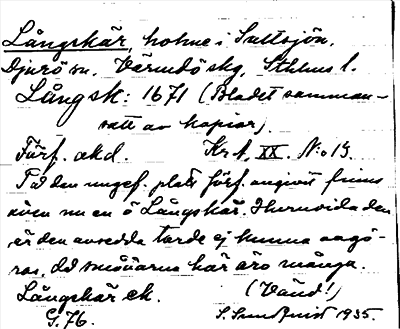 Långskär, holme i Saltsjön.
Djurö sn. Värmdö skg, Sthlms l.
Långsk: 1671 (Bladet samman-
satt av kopior).
Förf. okd. Kr. A. XX. N:o 13.
På den ungef. plats förf. angivit finns
även nu en ö Långskär. Huruvida den
är den avsedda torde ej kunna avgö-
ras, då småöarna här äro många.
Långskär ek. (Vänd!)
G.76. S. Sundquist 1935.